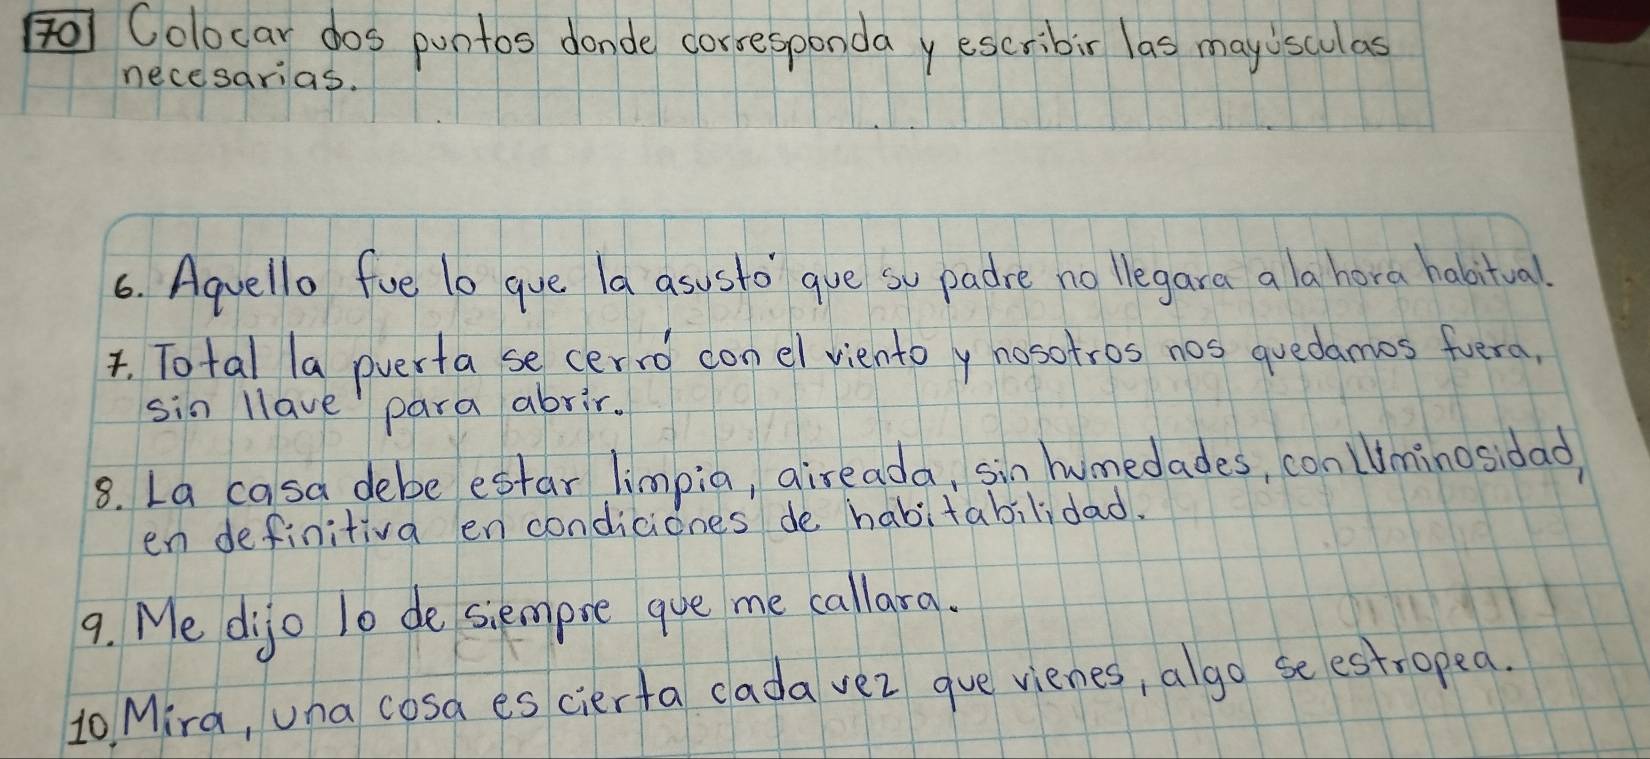 70 Colocar dos puntos donde corresponda y escribir las mayúsculas
necesarias.
6. Aquello fue lo que la asustó que su padre no llegara a la hora habitual.
7. Total la puerta se cerró con el viento y nosotros nos quedamos fuera,
sin llave para abrir.
8. La casa debe estar limpia, aireada, sin humedades, con lluminosidad,
en definitiva en condiciones de habitabilidad.
9. Me dijo lo de siempre que me callara.
10. Mira, una cosa es cierta cada vez que vienes, algo se estropea.